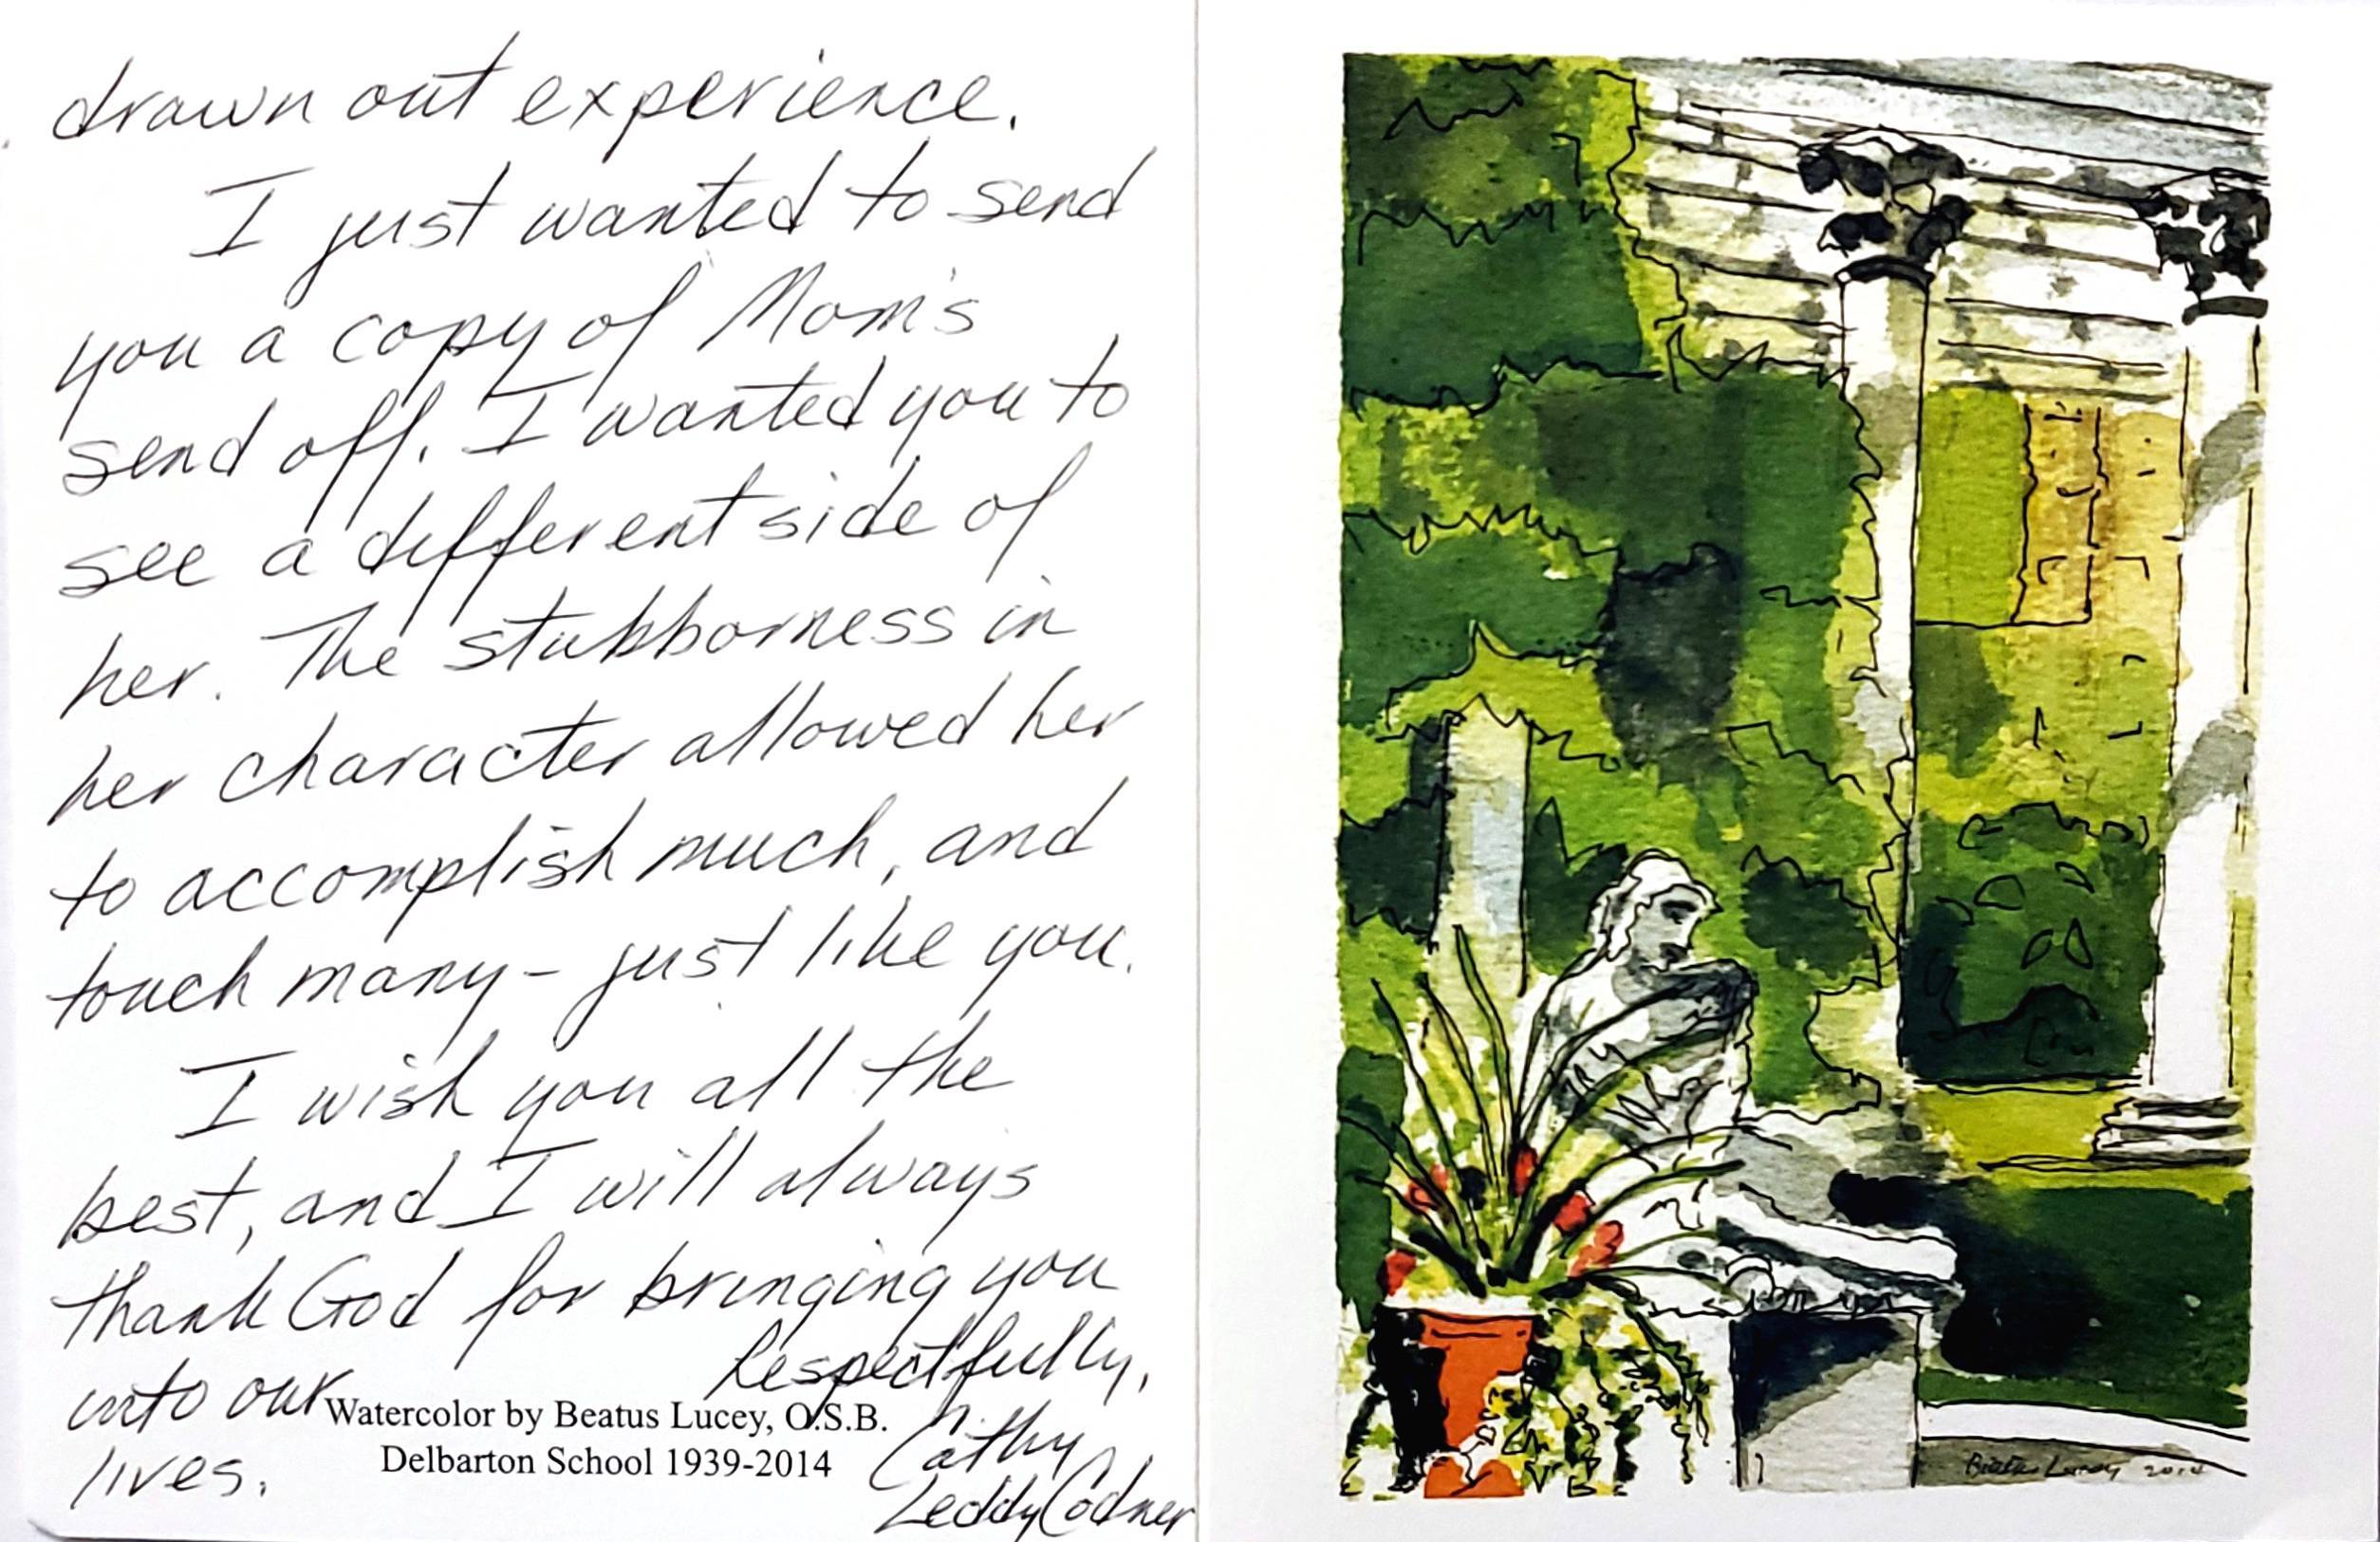 drawn out experience.
I just wanted to send
you a copy of Mom's
send off. I wanted you to
see a different side of
her. The stubborness in
her character allowed her
to accomplish much, and
touch many - just like you.
I wish you all the
best, and I will always
thank God for bringing you
into our
lives.
Respectfully,
Cathy
Leddy Codner
Watercolor by Beatus Lucey, O.S.B.
Delbarton School 1939-2014
Beatus Lucey 2014